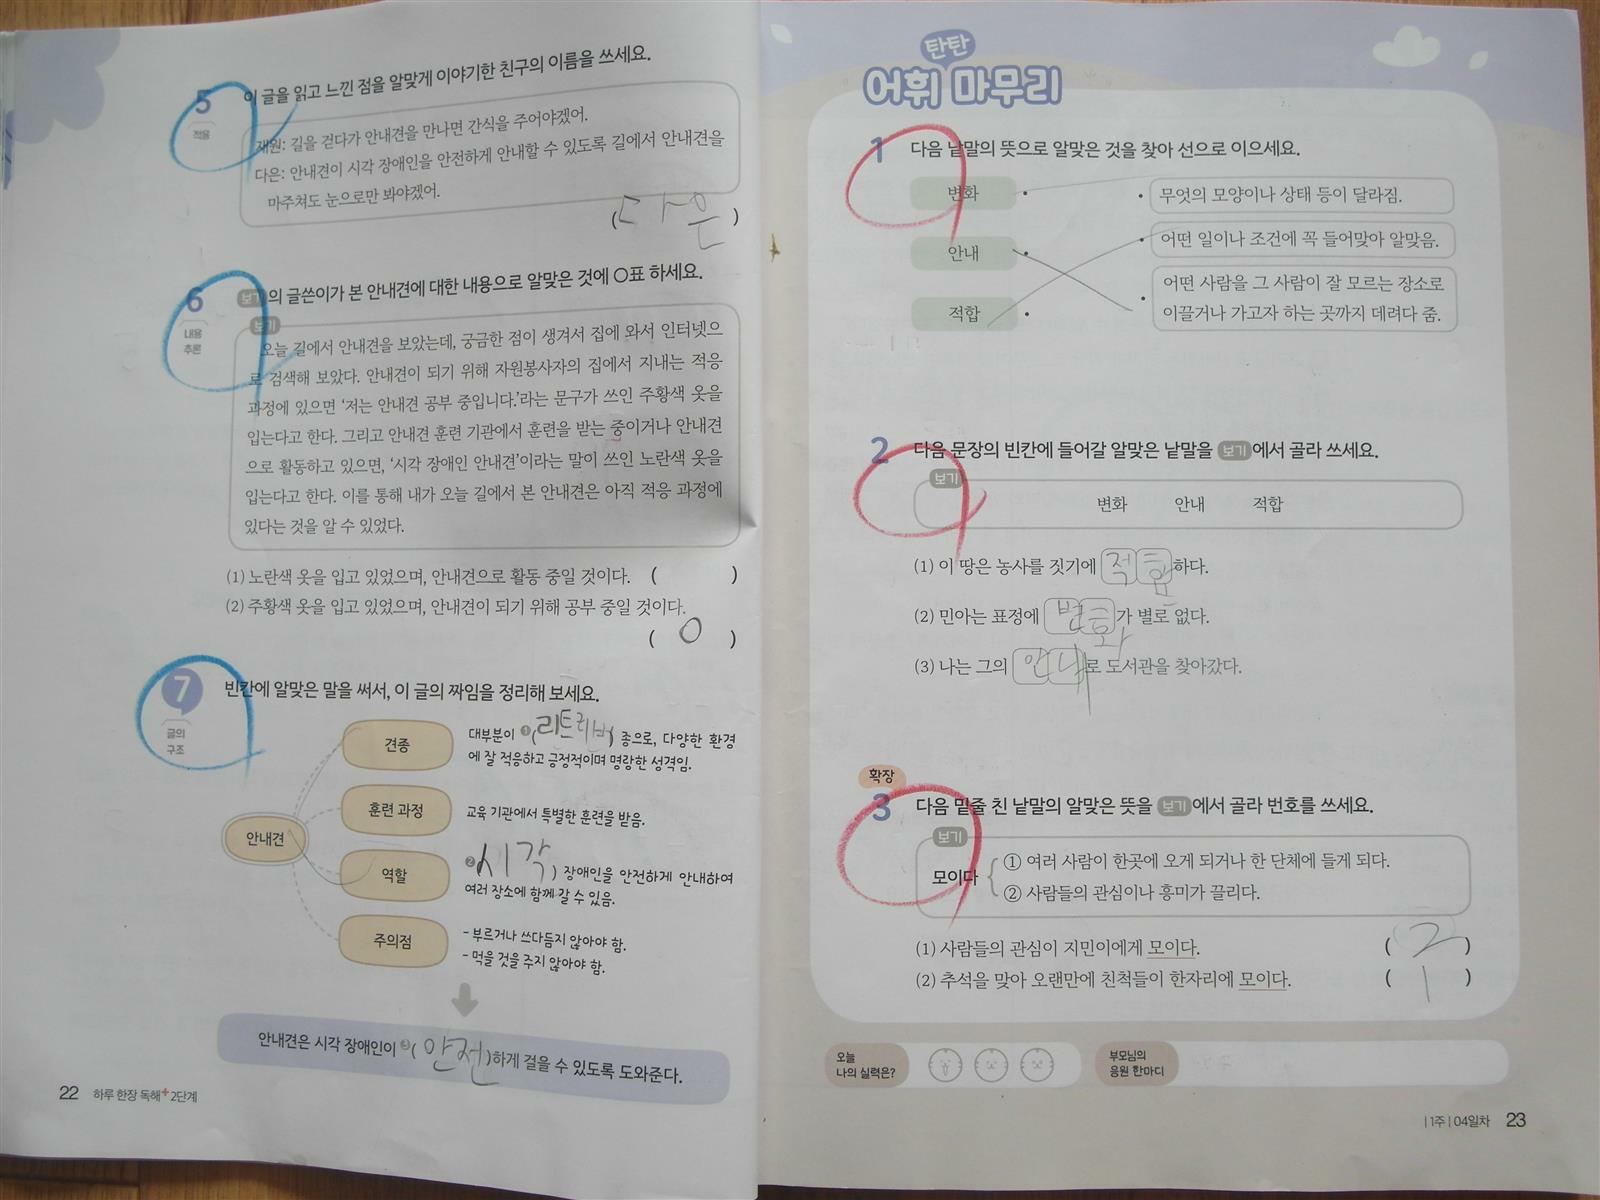 5 이 글을 읽고 느낀 점을 알맞게 이야기한 친구의 이름을 쓰세요.
적용
재원: 길을 걷다가 안내견을 만나면 간식을 주어야겠어.
다은: 안내견이 시각 장애인을 안전하게 안내할 수 있도록 길에서 안내견을
마주쳐도 눈으로만 봐야겠어.
(다은)
6 보기의 글쓴이가 본 안내견에 대한 내용으로 알맞은 것에 ○표 하세요.
내용
추론
보기
오늘 길에서 안내견을 보았는데, 궁금한 점이 생겨서 집에 와서 인터넷으
로 검색해 보았다. 안내견이 되기 위해 자원봉사자의 집에서 지내는 적응
과정에 있으면 '저는 안내견 공부 중입니다.'라는 문구가 쓰인 주황색 옷을
입는다고 한다. 그리고 안내견 훈련 기관에서 훈련을 받는 중이거나 안내견
으로 활동하고 있으면, '시각 장애인 안내견'이라는 말이 쓰인 노란색 옷을
입는다고 한다. 이를 통해 내가 오늘 길에서 본 안내견은 아직 적응 과정에
있다는 것을 알 수 있었다.
(1) 노란색 옷을 입고 있었으며, 안내견으로 활동 중일 것이다. ( )
(2) 주황색 옷을 입고 있었으며, 안내견이 되기 위해 공부 중일 것이다.
( O )
7 빈칸에 알맞은 말을 써서, 이 글의 짜임을 정리해 보세요.
글의
구조
안내견
견종
대부분이 ❶(리트리버) 종으로, 다양한 환경
에 잘 적응하고 긍정적이며 명랑한 성격임.
훈련 과정
교육 기관에서 특별한 훈련을 받음.
역할
❷(시각) 장애인을 안전하게 안내하여
여러 장소에 함께 갈 수 있음.
주의점
- 부르거나 쓰다듬지 않아야 함.
- 먹을 것을 주지 않아야 함.
안내견은 시각 장애인이 ❸(안전)하게 걸을 수 있도록 도와준다.
22 하루 한장 독해+ 2단계
탄탄
어휘 마무리
1 다음 낱말의 뜻으로 알맞은 것을 찾아 선으로 이으세요.
변화
무엇의 모양이나 상태 등이 달라짐.
안내
어떤 일이나 조건에 꼭 들어맞아 알맞음.
적합
어떤 사람을 그 사람이 잘 모르는 장소로
이끌거나 가고자 하는 곳까지 데려다 줌.
2 다음 문장의 빈칸에 들어갈 알맞은 낱말을 보기에서 골라 쓰세요.
보기
변화 안내 적합
(1) 이 땅은 농사를 짓기에 적합하다.
(2) 민아는 표정에 변화가 별로 없다.
(3) 나는 그의 안내로 도서관을 찾아갔다.
확장
3 다음 밑줄 친 낱말의 알맞은 뜻을 보기에서 골라 번호를 쓰세요.
보기
모이다
① 여러 사람이 한곳에 오게 되거나 한 단체에 들게 되다.
② 사람들의 관심이나 흥미가 끌리다.
(1) 사람들의 관심이 지민이에게 모이다. ( 2 )
(2) 추석을 맞아 오랜만에 친척들이 한자리에 모이다. ( 1 )
오늘
나의 실력은?
부모님의
응원 한마디
|1주| 04일차 23